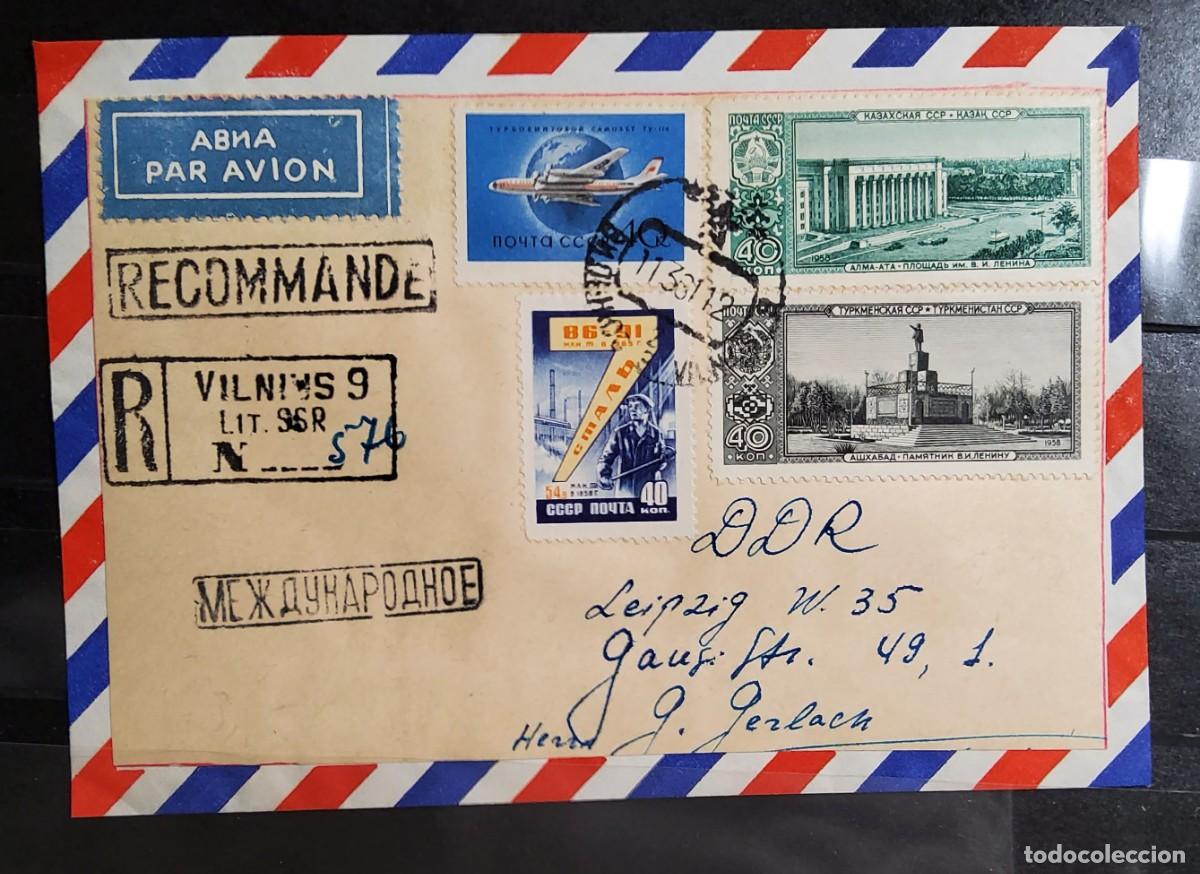 АВИА
PAR AVION
RECOMMANDE
R
VILNIUS 9
LIT. SSR
N 576
МЕЖДУНАРОДНОЕ
ТУРБОВИНТОВОЙ САМОЛЕТ ТУ-114
ПОЧТА СССР
ПОЧТА СССР
КАЗАХСКАЯ ССР • КАЗАК ССР
40
КОП
1958
АЛМА-АТА • ПЛОЩАДЬ ИМ. В. И. ЛЕНИНА
86-91
МЛН. Т. В 1965 Г.
СТАЛЬ
МЛН. Т.
В 1958 Г.
СССР ПОЧТА
40
КОП.
ПОЧТА
ТУРКМЕНСКАЯ ССР • ТУРКМЕНИСТАН ССР
40
КОП
1958
АШХАБАД • ПАМЯТНИК В.И. ЛЕНИНУ
DDR
Leipzig W. 35
Str. 49, 1.
Herrn G. Gerlach
todocoleccion